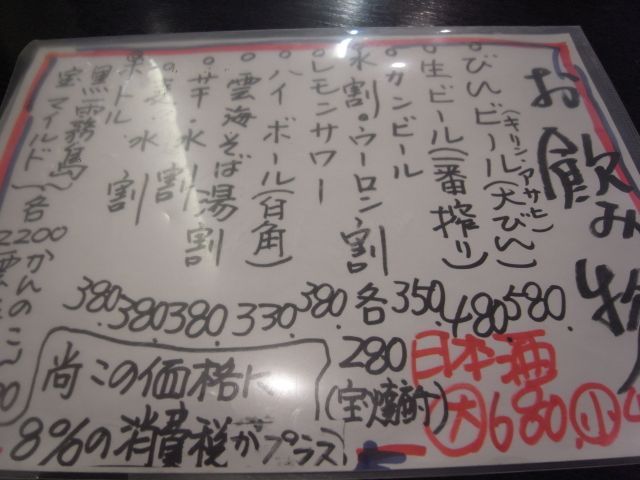 お飲み物
(キリン・アサヒ)
びんビール(大びん) 580.
生ビール(一番搾り) 480.
カンビール 350.
水割。ウーロン割 各280
(宝焼酎)
レモンサワー 380.
ハイボール(白角) 330.
雲海そば湯割 380.
水割 380.
水割 380.
ボトル
黒霧島
宝マイルド
各2200
日本酒
大 680. 小
尚この価格に
8%の消費税がプラス